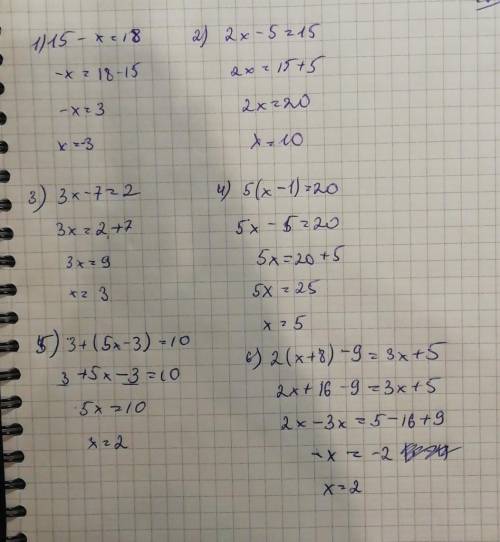 1) 15 - x = 18
-x = 18-15
-x = 3
x = -3
2) 2x - 5 = 15
2x = 15 + 5
2x = 20
x = 10
3) 3x - 7 = 2
3x = 2 + 7
3x = 9
x = 3
4) 5(x - 1) = 20
5x - 5 = 20
5x = 20 + 5
5x = 25
x = 5
5) 3 + (5x - 3) = 10
3 + 5x - 3 = 10
5x = 10
x = 2
6) 2(x + 8) - 9 = 3x + 5
2x + 16 - 9 = 3x + 5
2x - 3x = 5 - 16 + 9
-x = -2
x = 2